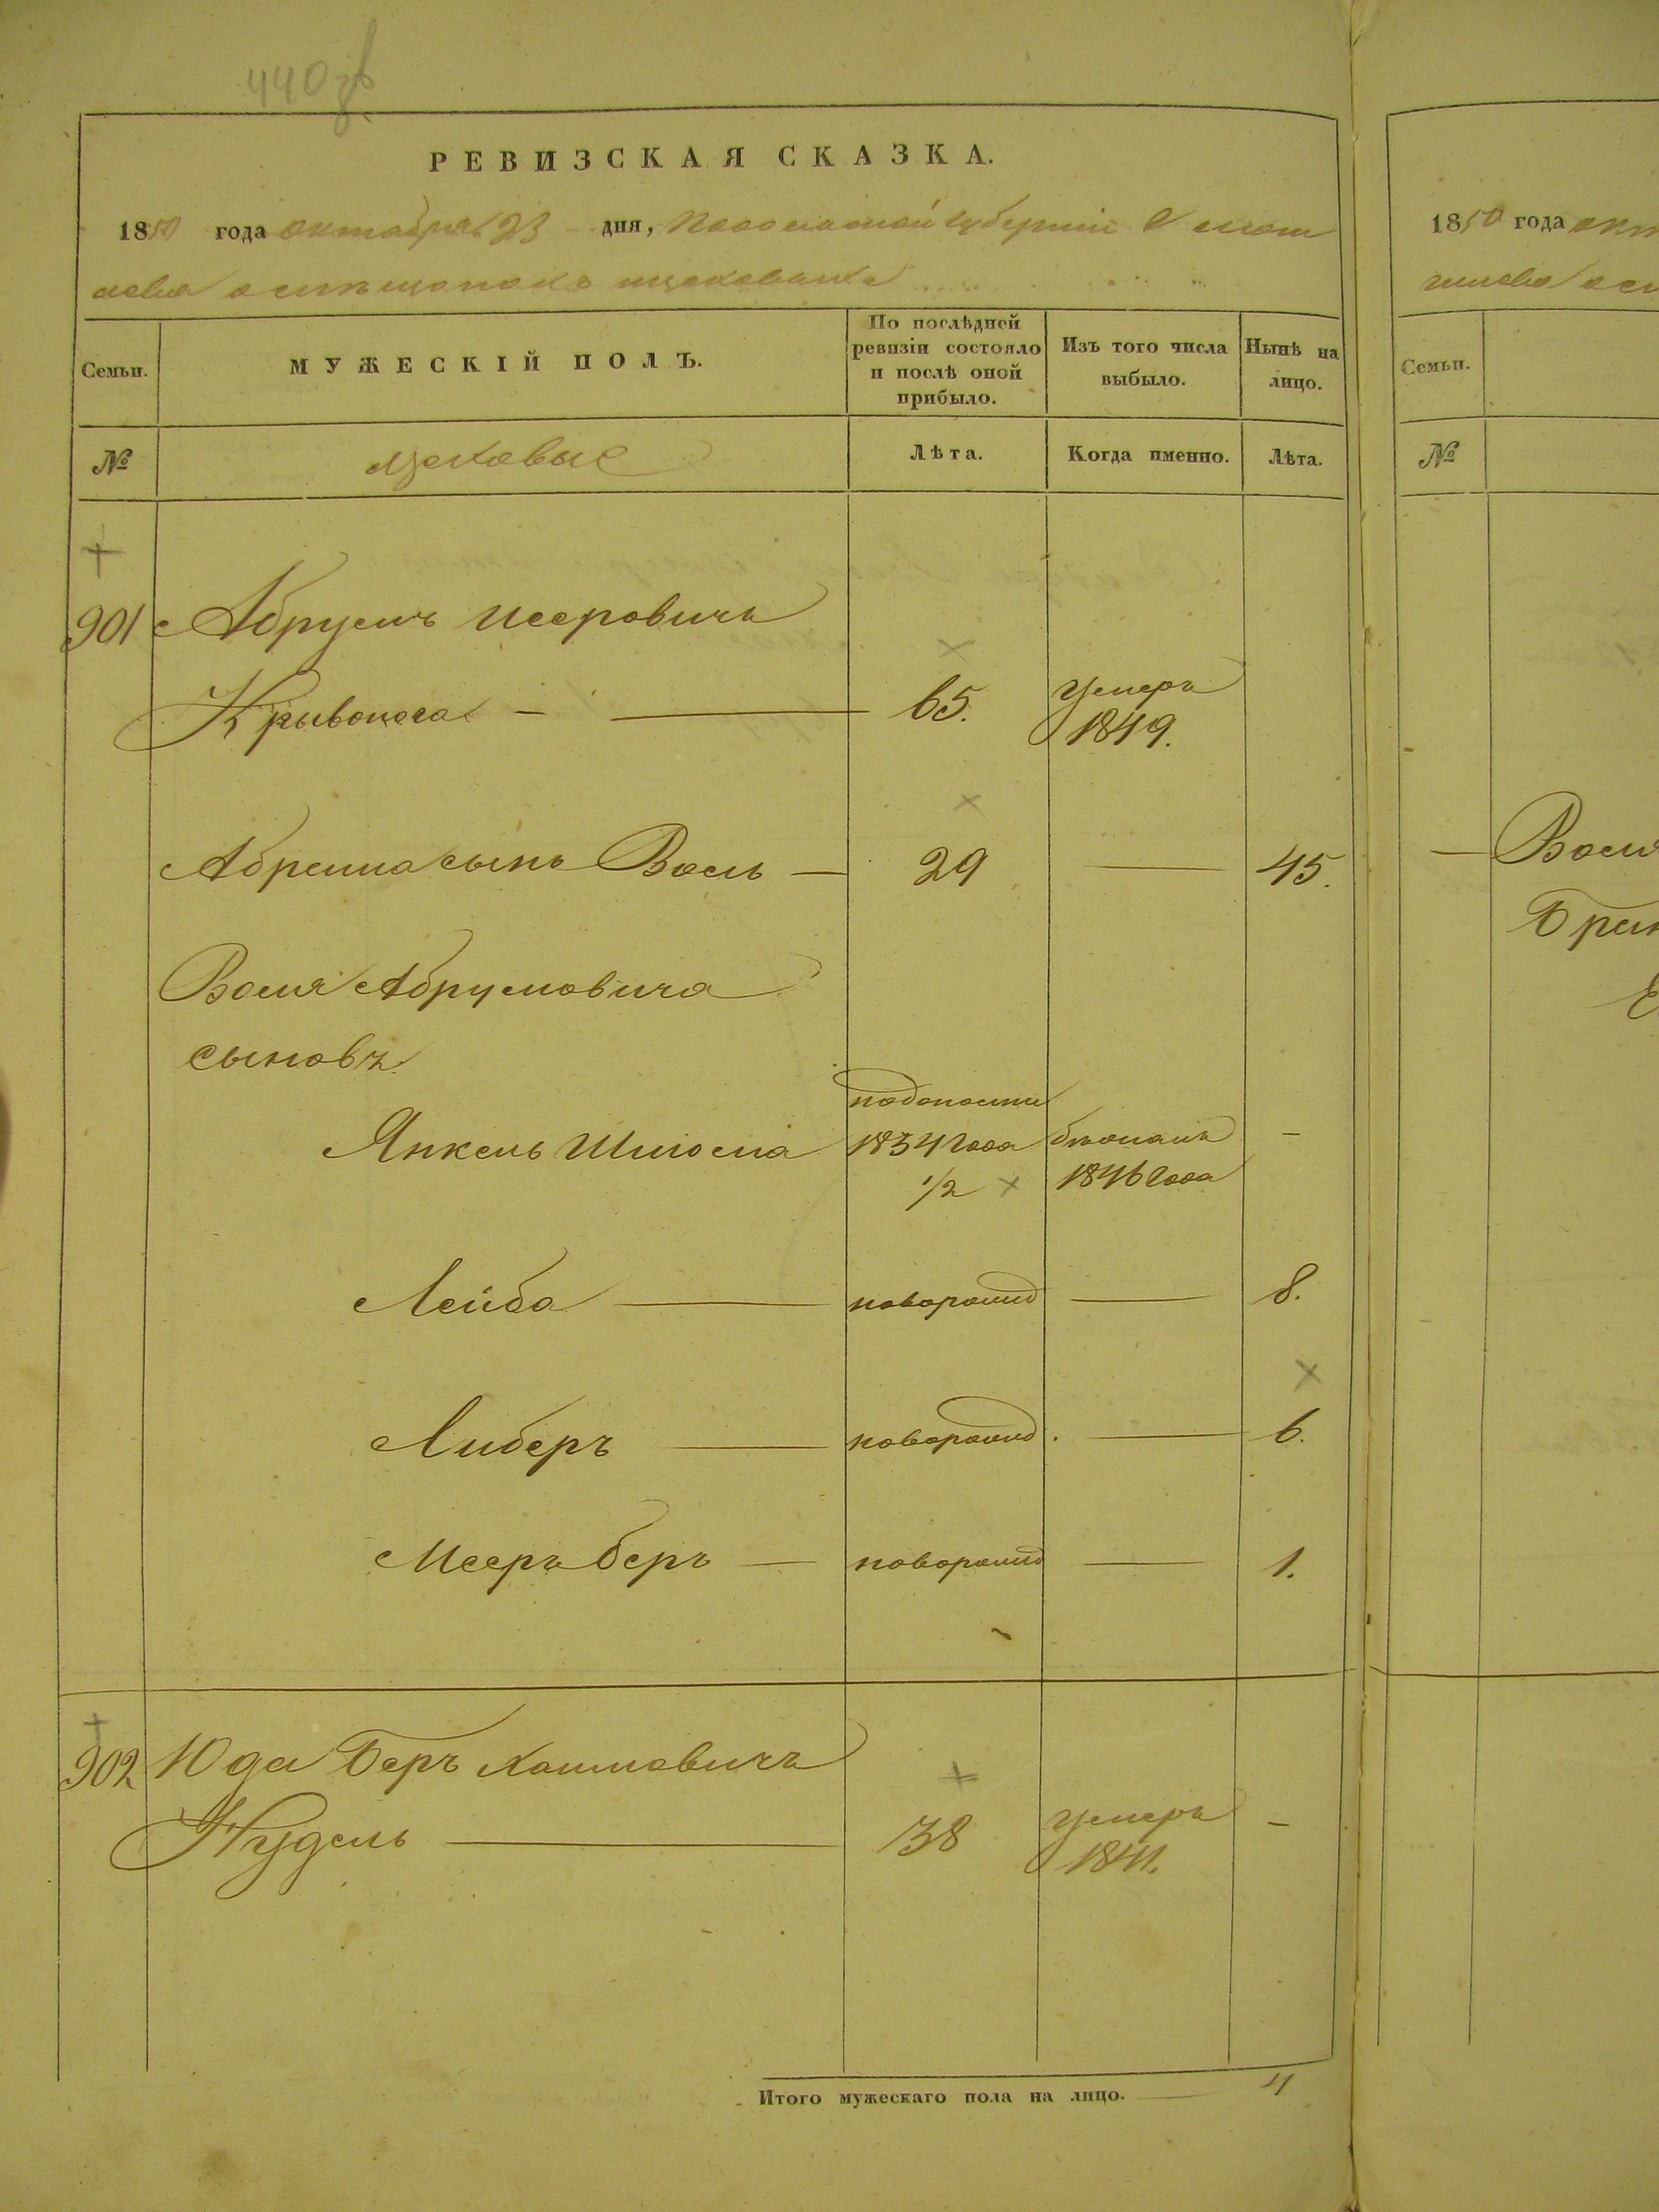 440 об
РЕВИЗСКАЯ СКАЗКА.
1850 года октября 23 дня, Подольской губерніи
Семьи.
МУЖЕСКІЙ ПОЛЪ.
По послѣдней ревизіи состояло и послѣ оной прибыло.
Изъ того числа выбыло.
Нынѣ на лицо.
№
цеховые
Лѣта.
Когда именно.
Лѣта.
901 Абрумъ Мееровичъ
Кривонога — 65. умеръ 1849.
Абрума сынъ Волъ — 29 — 45.
Воля Абрумовича
сыновъ
Янкель Шлиома 1834 года 1/2 1846 года -
Лейба — новорожд — 8.
Либеръ — новорожд. — 6.
Мееръ беръ — новорожд — 1.
902 Юда Беръ Хаимовичъ
Нудель — 38 умеръ 1841. -
Итого мужескаго пола на лицо. — 4
1850 года окт
Семьи.
№